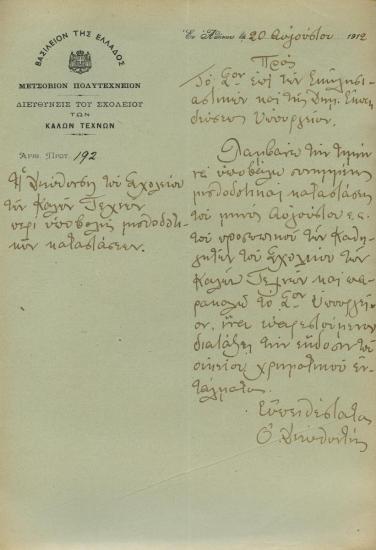 ΒΑΣΙΛΕΙΟΝ ΤΗΣ ΕΛΛΑΔΟΣ
ΜΕΤΣΟΒΙΟΝ ΠΟΛΥΤΕΧΝΕΙΟΝ
ΔΙΕΥΘΥΝΣΙΣ ΤΟΥ ΣΧΟΛΕΙΟΥ
ΤΩΝ
ΚΑΛΩΝ ΤΕΧΝΩΝ
Ἀριθ. Πρωτ. 192
Ἡ Διεύθυνσις τοῦ Σχολείου
τῶν Καλῶν Τεχνῶν
περὶ ὑποβολῆς μισθοδοτι-
κῶν καταστάσεων.
Ἐν Ἀθήναις τῇ 20 Αὐγούστου 1912
Πρὸς
Τὸ Σον ἐπὶ τῶν Ἐκκλησι-
αστικῶν καὶ τῆς Δημ. Ἐκπαι-
δεύσεως Ὑπουργεῖον.
Λαμβάνω τὴν τιμὴν
νὰ ὑποβάλω συνημμένως
μισθοδοτικὰς καταστάσεις
τοῦ μηνὸς Αὐγούστου ἐ.ἔ.
τοῦ προσωπικοῦ τῶν Καθη-
γητῶν τοῦ Σχολείου τῶν
Καλῶν Τεχνῶν καὶ πα-
ρακαλῶ τὸ Σον Ὑπουργεῖ-
ον, ἵνα εὐαρεστούμενον
διατάξῃ τὴν ἔκδοσιν τοῦ
οἰκείου χρηματικοῦ ἐν-
τάλματος.
Εὐπειθέστατος
Ὁ Διευθυντής